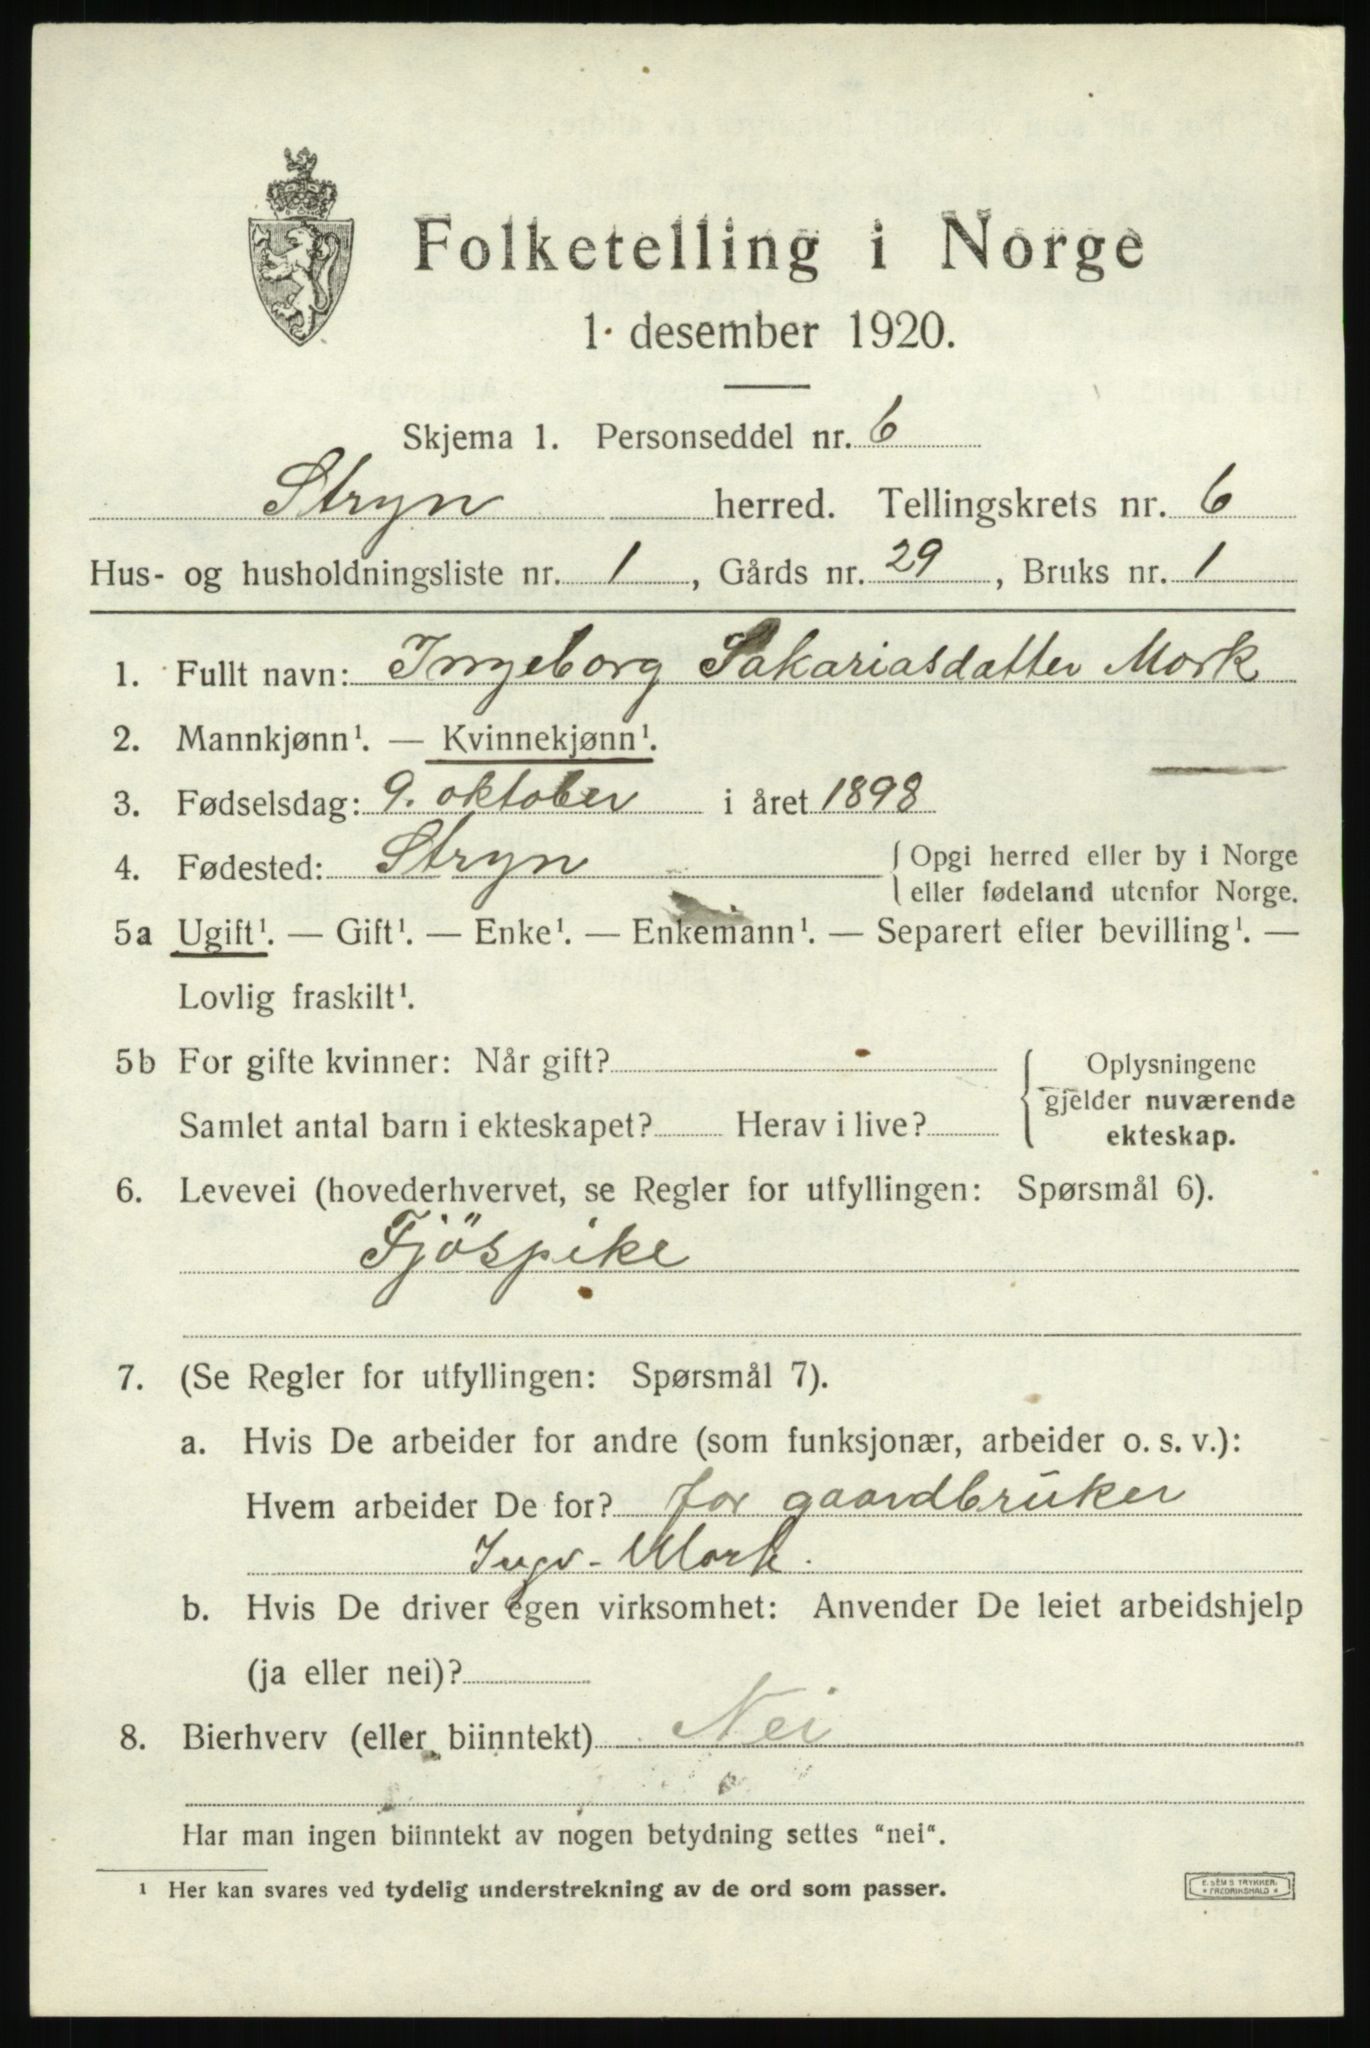 Folketelling i Norge
1. desember 1920.
Skjema 1. Personseddel nr. 6
Stryn herred. Tellingskrets nr. 6
Hus- og husholdningsliste nr. 1, Gårds nr. 29, Bruks nr. 1
1. Fullt navn: Ingeborg Sakariasdatter Mork
2. Mannkjønn¹. — Kvinnekjønn¹.
3. Fødselsdag: 9. oktober i året 1898
4. Fødested: Stryn { Opgi herred eller by i Norge
eller fødeland utenfor Norge.
5a Ugift¹. — Gift¹. — Enke¹. — Enkemann¹. — Separert efter bevilling¹. —
Lovlig fraskilt¹.
5b For gifte kvinner: Når gift? { Oplysningene
gjelder nuværende
Samlet antal barn i ekteskapet? Herav i live?
ekteskap.
6. Levevei (hovederhvervet, se Regler for utfyllingen: Spørsmål 6).
Fjöspike
7. (Se Regler for utfyllingen: Spørsmål 7).
a. Hvis De arbeider for andre (som funksjonær, arbeider o. s. v.):
Hvem arbeider De for? for gaardbruker
Ingv. Mork.
b. Hvis De driver egen virksomhet: Anvender De leiet arbeidshjelp
(ja eller nei)?
8. Bierhverv (eller biinntekt) Nei
Har man ingen biinntekt av nogen betydning settes "nei".
¹ Her kan svares ved tydelig understrekning av de ord som passer.
E. SEM S TRYKKERI
* FREDRIKSHALD *